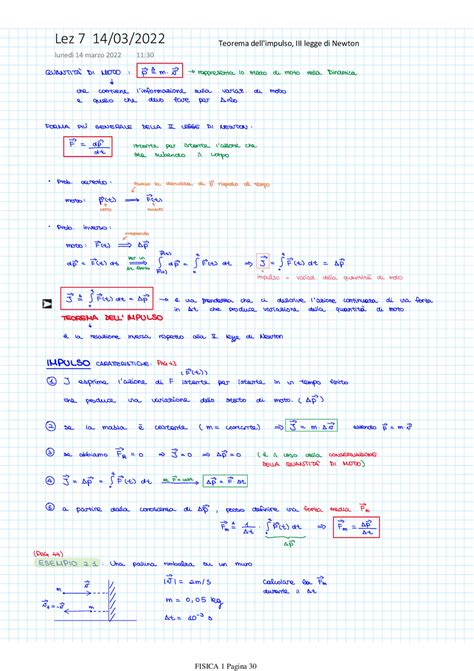 Lez 7 14/03/2022
Teorema dell'impulso, III legge di Newton
lunedì 14 marzo 2022 11:30
QUANTITÀ DI MOTO : p⃗ ≜ m · v⃗ → rappresenta lo stato di moto nella Dinamica
che contiene l'informazione sulla variaz. di moto
e quello che devo fare per
FORMA PIÙ GENERALE DELLA II LEGGE DI NEWTON:
F⃗ = dp⃗/dt istante per istante l'azione che
sta subendo il corpo
• Prob. diretto:
moto: p⃗(t) ⟹ F⃗(t)
• Prob. inverso:
moto: F⃗(t) ⟹ Δp⃗
dp⃗ = F⃗(t) dt ⟹ ∫ dp⃗ = ∫ F⃗(t) dt ⟹ J⃗ = ∫ F⃗(t) dt = Δp⃗
impulso = variaz. della quantità di moto
J⃗ ≜ ∫ F⃗(t) dt = Δp⃗ → è una grandezza che ci descrive l'azione continuata di una forza
in Δt che produce variazione della quantità di moto
TEOREMA DELL'IMPULSO
è la relazione inversa rispetto alla II legge di Newton
IMPULSO CARATTERISTICHE: PAG 43
(F⃗(t))
① J esprime l'azione di F istante per istante in un tempo finito
che produce una variazione dello stato di moto. (Δp⃗)
② se la massa è costante (m = costante) ⟹ J⃗ = m · Δv⃗ essendo p⃗ = m · v⃗
③ se abbiamo F⃗R = 0 ⟹ J⃗ = 0 ⟹ Δp⃗ = 0 (è il caso della CONSERVAZIONE
DELLA QUANTITÀ DI MOTO)
④ J⃗ = Δp⃗ = ∫ F⃗(t) dt se F⃗ = cost → Δp⃗ = F⃗ · Δt
⑤ a partire dalla conoscenza di Δp⃗, posso definire una forza media F⃗m
F⃗m ≜ 1/Δt · ∫ F⃗(t) dt ⟹ F⃗m = Δp⃗/Δt
Δp⃗
(PAG 44)
ESEMPIO 2.1: Una pallina rimbalza su un muro
m v⃗ |v⃗| = 2 m/s Calcolare la F⃗m
durante il Δt
v⃗f = -v⃗ m m = 0,05 kg
Δt = 10⁻³ s
FISICA 1 Pagina 30